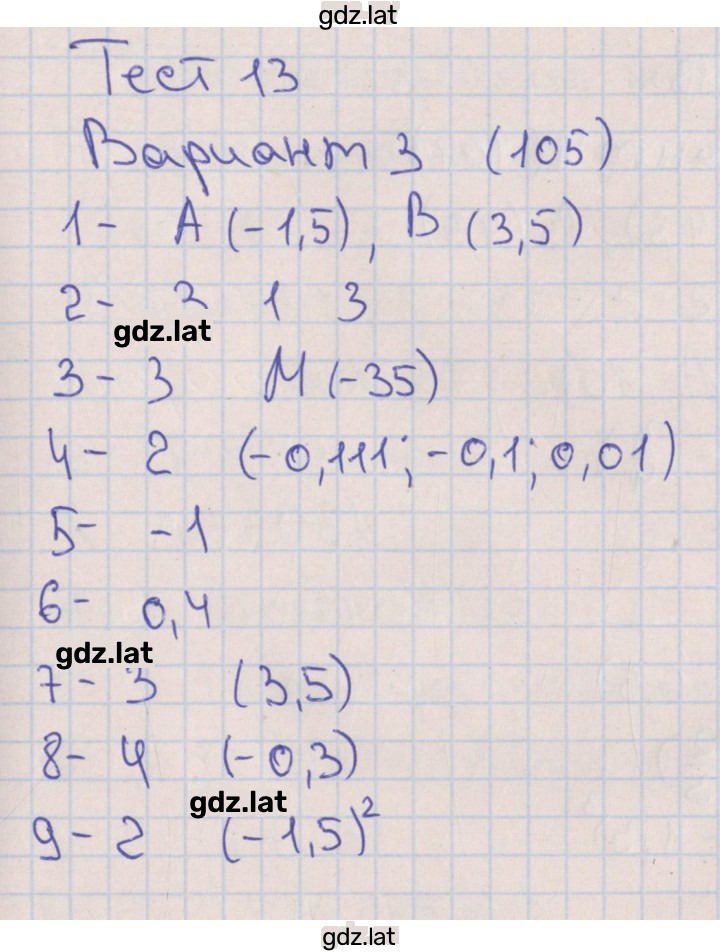 gdz.lat
Тест 13
Вариант 3 (105)
1- A (-1,5), B (3,5)
2- 2 1 3
gdz.lat
3- 3 M (-35)
4- 2 (-0,111; -0,1; 0,01)
5- -1
6- 0,4
gdz.lat
7- 3 (3,5)
8- 4 (-0,3)
gdz.lat
9- 2 (-1,5)²
gdz.lat